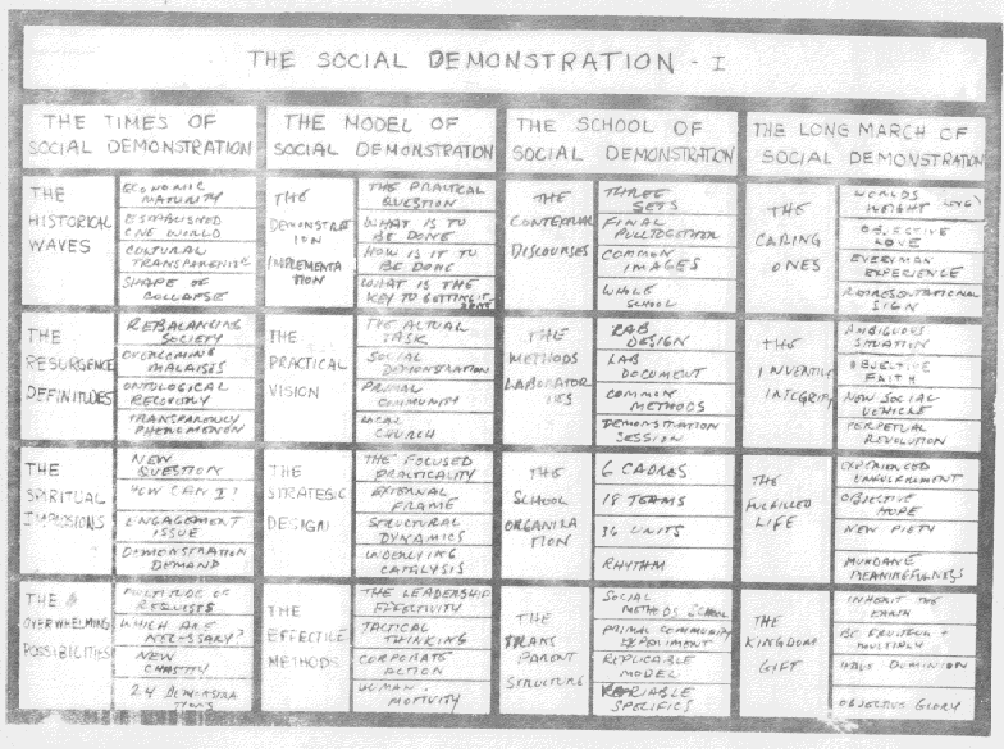 THE SOCIAL DEMONSTRATION - I
THE TIMES OF
SOCIAL DEMONSTRATION
THE HISTORICAL WAVES
ECONOMIC
MATURITY
ESTABLISHED
ONE WORLD
CULTURAL
SHAPE OF
COLLAPSE
THE RESURGENCE DEFINITUDES
REBALANCING
SOCIETY
OVERCOMING
MALAISES
ONTOLOGICAL
RECOVERY
TRANSPARENCY
PHENOMENON
THE SPIRITUAL IMPLOSIONS
NEW
QUESTION
HOW CAN I?
ENGAGEMENT
ISSUE
DEMONSTRATION
DEMAND
THE OVERWHELMING POSSIBILITIES
MULTITUDE OF
REQUESTS
WHICH ARE
NECESSARY?
NEW
CHASTITY
24
THE MODEL OF
SOCIAL DEMONSTRATION
THE
DEMONSTRAT
ION
IMPLEMENTA
TION
THE PRACTICAL
QUESTION
WHAT IS TO
BE DONE
HOW IS IT TO
BE DONE
WHAT IS THE
KEY TO GETTING IT
DONE
THE
PRACTICAL
VISION
THE ACTUAL
TASK
SOCIAL
DEMONSTRATION
PRIMAL
COMMUNITY
LOCAL
CHURCH
THE
STRATEGIC
DESIGN
THE FOCUSED
PRACTICALITY
EXTERNAL
FRAME
STRUCTURAL
DYNAMICS
UNDERLYING
CATALYSIS
THE
EFFECTIVE
METHODS
THE LEADERSHIP
EFFECTIVITY
TACTICAL
THINKING
CORPORATE
ACTION
HUMAN
MOTIVITY
THE SCHOOL OF
SOCIAL DEMONSTRATION
THE
CONTEXTUAL
DISCOURSES
THREE
SETS
FINAL
PULLTOGETHER
COMMON
IMAGES
WHOLE
SCHOOL
THE
METHODS
LABORATOR
IES
LAB
DESIGN
LAB
DOCUMENT
COMMON
METHODS
DEMONSTRATION
SESSION
THE
SCHOOL
ORGANIZA
TION
6 CADRES
18 TEAMS
36 UNITS
RHYTHM
THE
TRANS
PARENT
STRUCTURE
SOCIAL
METHODS SCHOOL
PRIMAL COMMUNITY
EXPERIMENT
REPLICABLE
MODEL
VARIABLE
SPECIFICS
THE LONG MARCH OF
SOCIAL DEMONSTRATION
THE
CARING
ONES
WORLDS
WEIGHT
OBJECTIVE
LOVE
EVERYMAN
EXPERIENCE
REPRESENTATIONAL
SIGN
THE
INVENTIVE
INTEGRITY
AMBIGUOUS
SITUATION
OBJECTIVE
FAITH
NEW SOCIAL
VEHICLE
PERPETUAL
REVOLUTION
THE
FULFILLED
LIFE
EXPERIENCED
UNFULFILLMENT
OBJECTIVE
HOPE
NEW PIETY
MUNDANE
MEANINGFULNESS
THE
KINGDOM
GIFT
INHERIT THE
EARTH
BE FRUITFUL +
MULTIPLY
HAVE DOMINION
OBJECTIVE GLORY